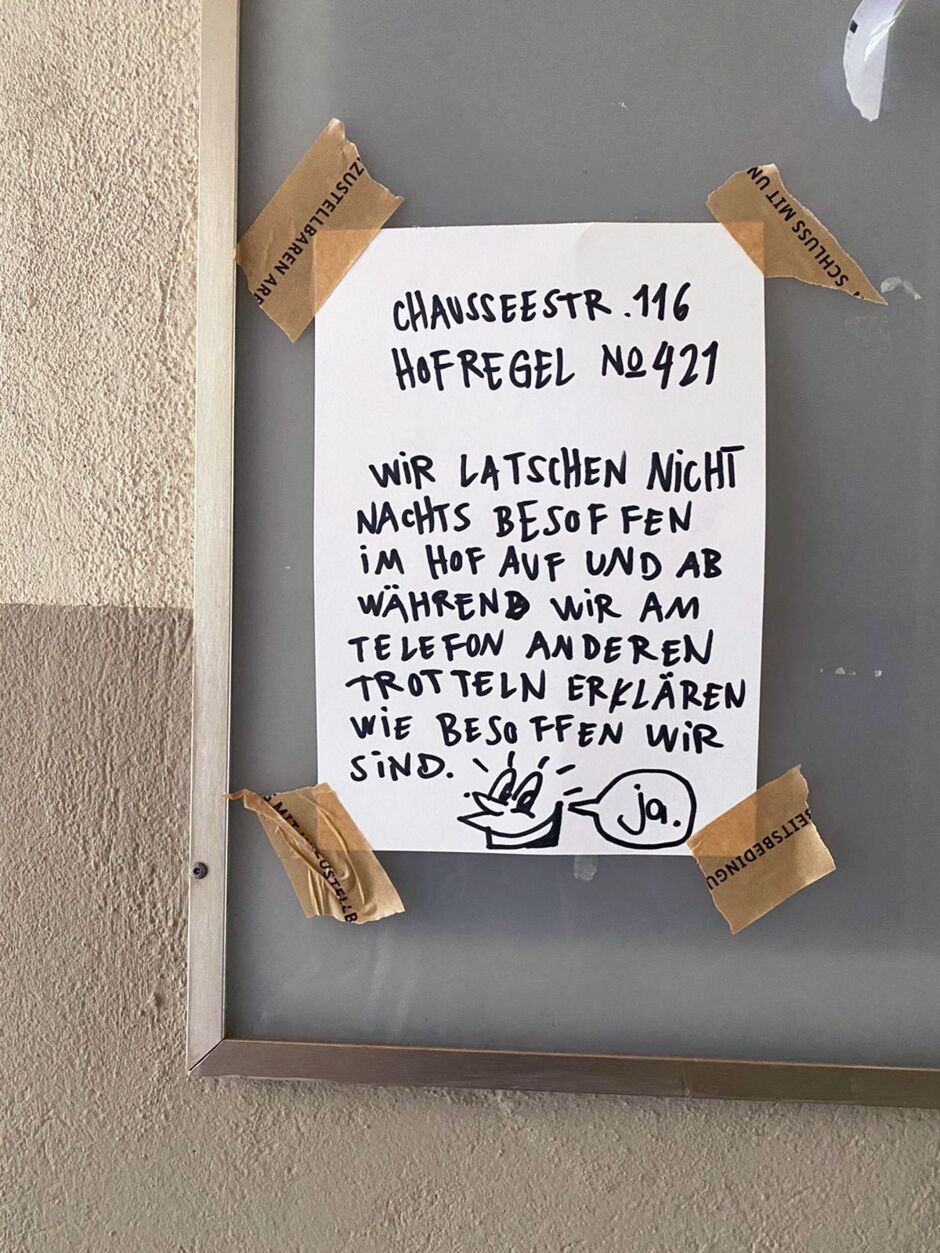 ZUSTELLBAREN ARB
SCHLUSS MIT UN
CHAUSSEESTR. 116
HOFREGEL No 421
WIR LATSCHEN NICHT
NACHTS BESOFFEN
IM HOF AUF UND AB
WÄHREND WIR AM
TELEFON ANDEREN
TROTTELN ERKLÄREN
WIE BESOFFEN WIR
SIND.
ja.
EITSBEDINGU